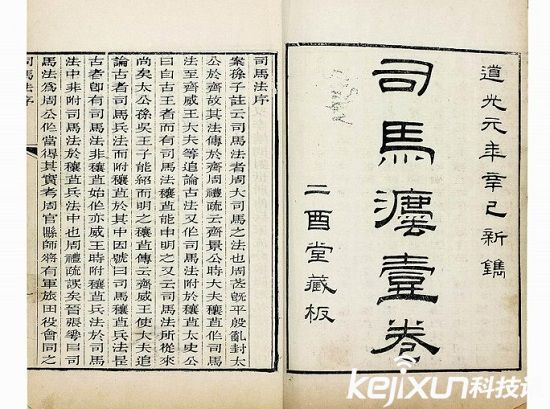 道光元年辛巳新鐫
司馬灋壹卷
二酉堂藏板
司馬法序
案孫子註云司馬法者周大司馬之法也周武旣平殷亂封太
公於齊故其法傳於齊周禮疏云齊景公時大夫穰苴作司馬
法至齊威王大夫等追論古法又作司馬法附於穰苴太史公
曰自古王者而有司馬法穰苴能申明之又云司馬法所從來
尚矣太公孫吳王子能紹而明之穰苴傳云齊威王使大夫追
論古者司馬兵法而附穰苴於其中因號曰司馬穰苴兵法是
古者卽有司馬法非穰苴始作亦威王時附穰苴兵法於司馬
法中非附司馬法於穰苴兵法中也周禮疏誤矣晉張華曰司
馬法爲周公作當得其實考周官縣師將有軍旅田役會同之
司馬法序
kejixun科技讯